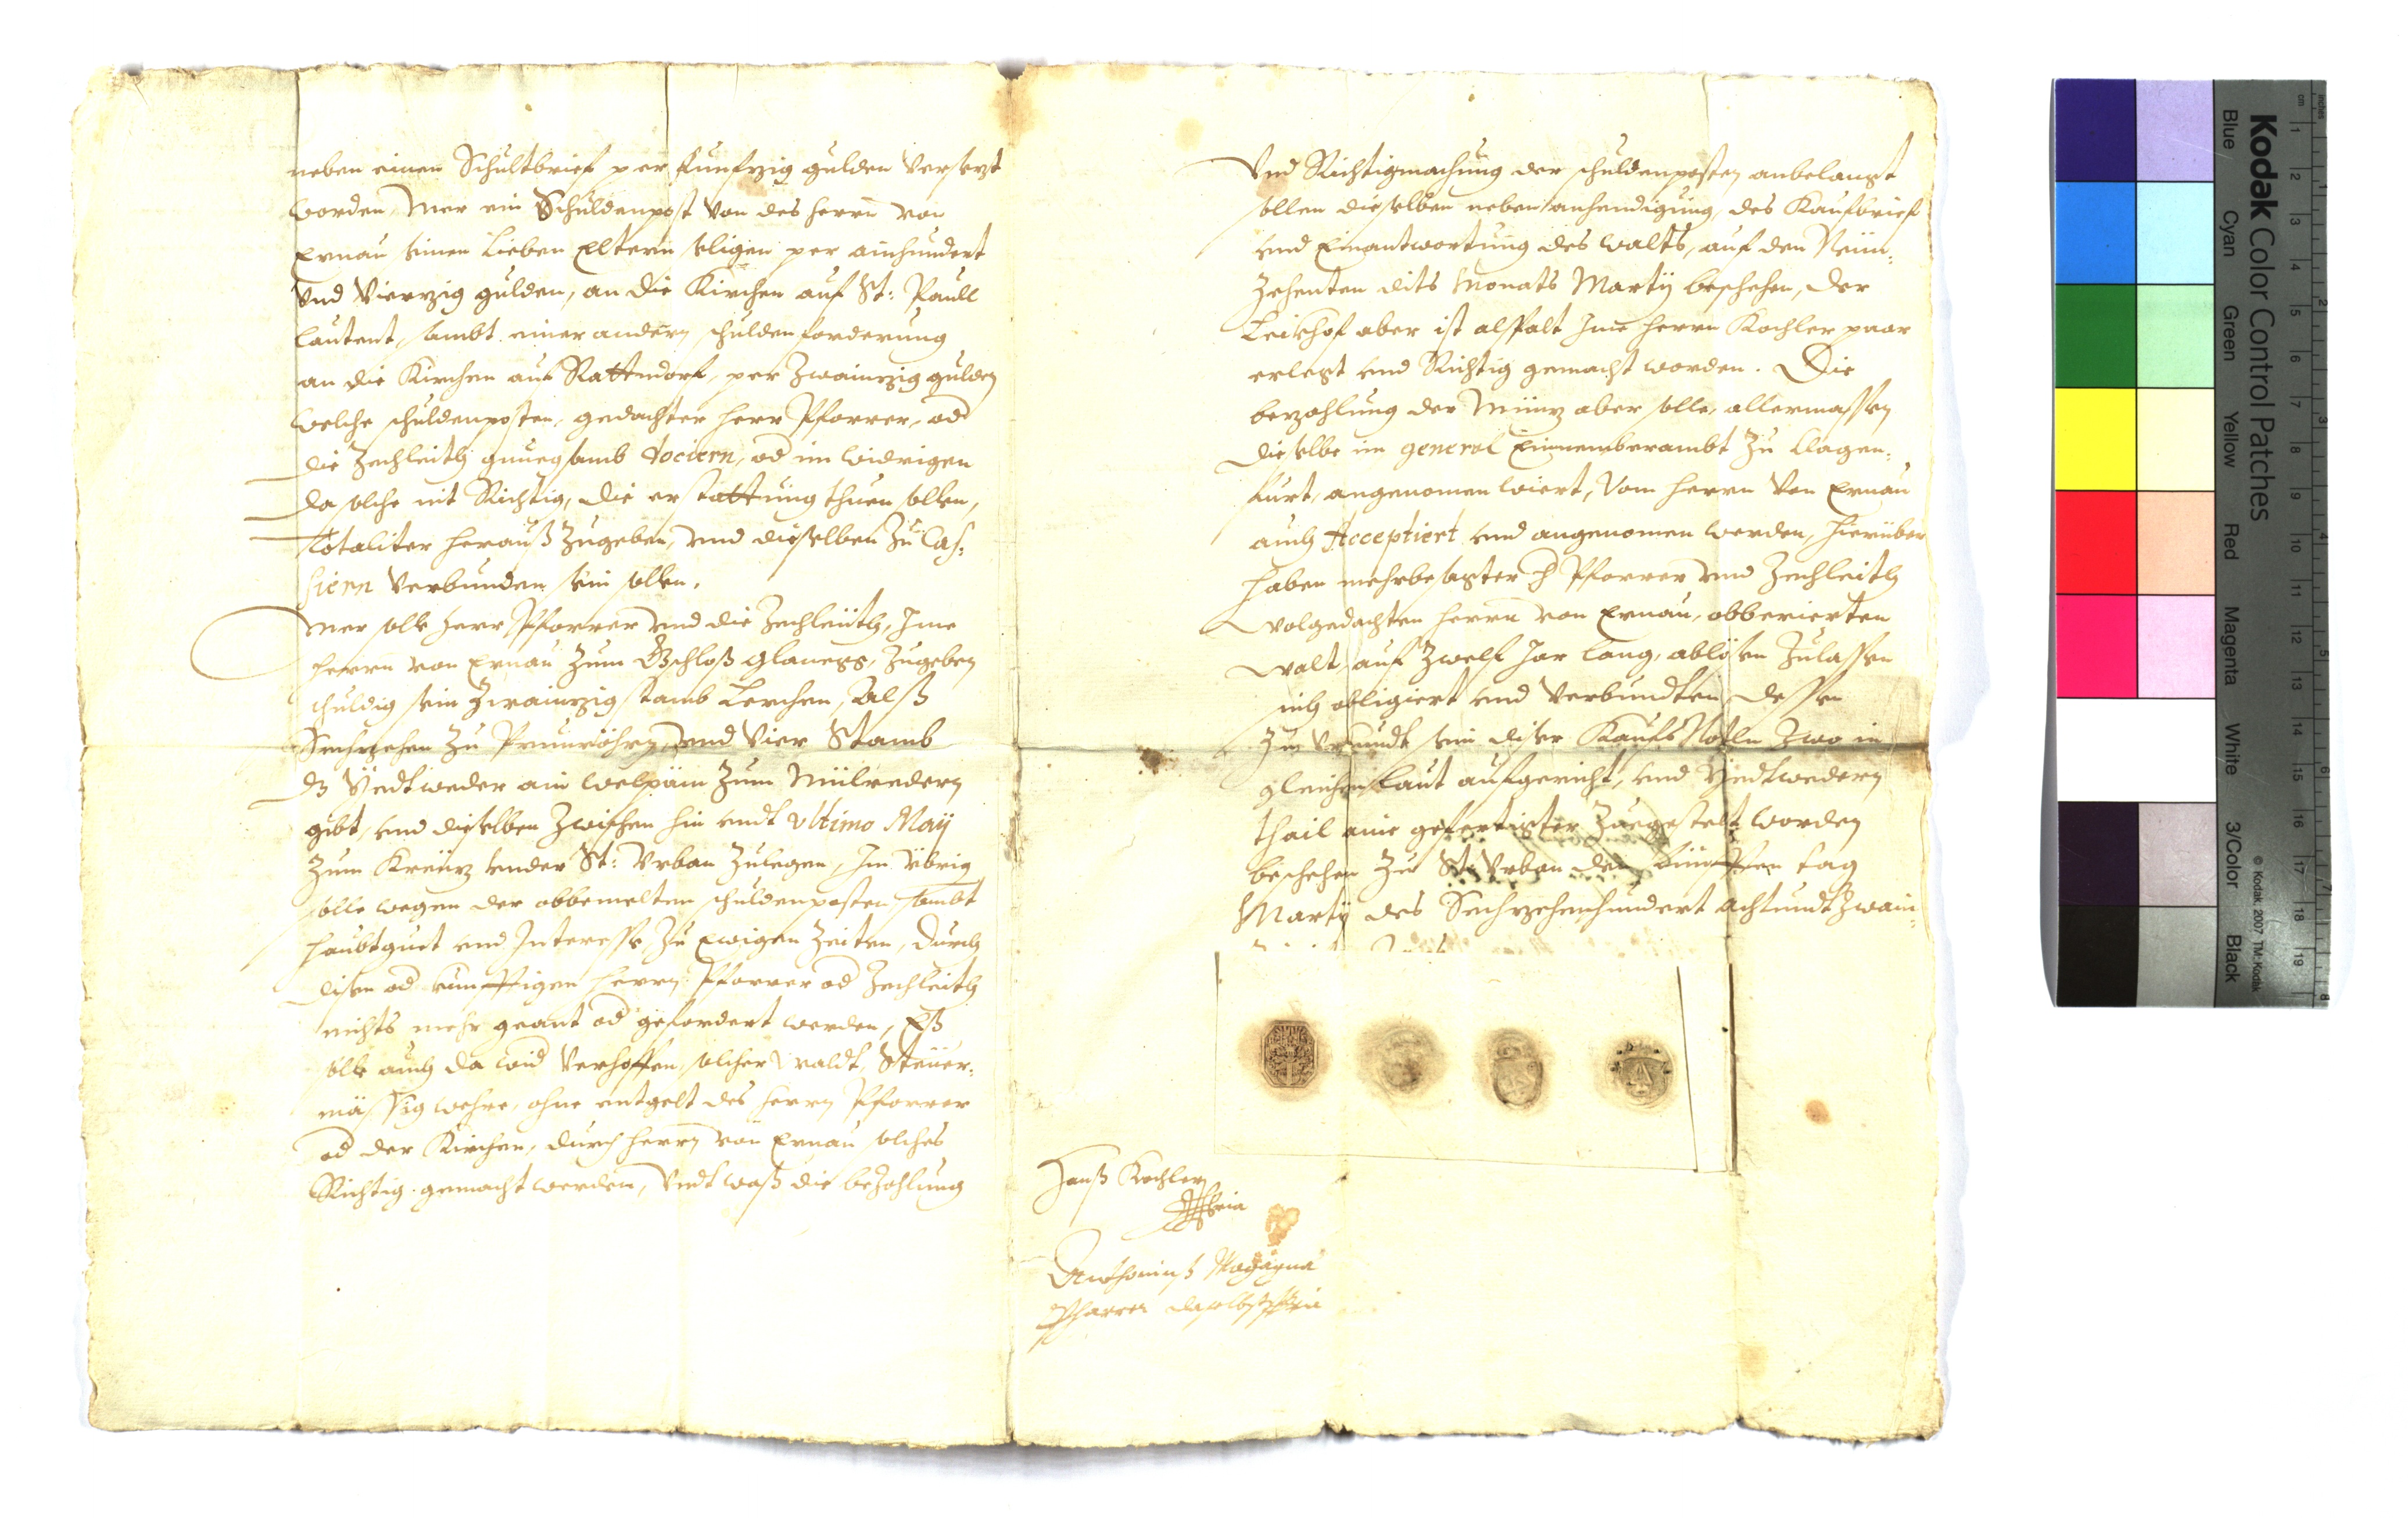 neben einen Schultbrief per funfzig gulden versezt
worden, Mer ein Schuldenpost von des herrn von
Ernau seinen lieben Eltern seligen per ainhundert
vnd Vierzig gulden, an die Kirchen auf St: Paull
lautent, sambt einer andern schulden forderung
an die Kirchen auf Rattendorf, per Zwainzig gulden
welche schuldenposten, gedachter herr Pfarrer, od
die Zechleith gnuegsamb dociern, od im widrigen
da solche nit Richtig, die erstattung thuen sollen,
totaliter herauß Zugeben, vnd dieselben Zu Cas:
siern verbunden sein sollen.
Mer solle herr Pfarrer vnd die Zechleüth, Ime
herrn von Ernau zum Gschloß Glanegg, Zugeben
schuldig sein Zwainzig stamb Lerchen, Alß
Sechzehen Zu Prunröhrn, vnd vier Stamb
dz Yedtweder ain welpäm zum Mülredern
gibt, vnd dieselben zwischen hin vndt vltimo Maÿ
Zum Kreüz vnder St: Vrban Zulegen, Im übrig
solle wegen der obbemelten schuldenposten sambt
haubtguet vnd Interesse, Zu Ewigen Zeiten, durch
disen od künfftigen herrn Pfarrer od Zechleith
nichts mehr geant od gefordert werden, Eß
solle auch da wid verhoffen, solcher waldt, Steüer:
mässig wehre, ohne entgelt des herrn Pfarrer
od der Kirchen, durch herrn von Ernau solches
Richtig gemacht werden, Vndt waß die beZahlung
Vnd Richtigmachung der schuldenposten anbelangt
sollen dieselben neben anhendigung des Kaufbrief
vnd Einantwortung des walts, auf den Neün:
Zehenten dits Monats Martÿ beschehen, der
Leikhof aber ist alspalt Ime herrn Kochler paar
erlegt vnd Richtig gemacht worden. Die
bezahlung der Münz aber solle, allermassen
dieselbe im general Einnemberambt Zu Clagen:
furt, angenomen wiert, Vom herrn von Ernau
auch Acceptiert vnd angenomen werden, hierüber
haben mehrbesagter H Pfarrer vnd Zechleith
wolgedachten herrn von Ernau, obberierten
walt, auf Zwelf Jar lang, ablösen Zulassen
sich obligiert vnd verbundten, dessen
Zu Vrkundt sein diser Kaufs Notln Zwo in
gleichen laut aufgericht, vnd Yedtwedern
thail aine gefertigter Zuegestelt worden
beschehen Zu St: Vrban den fünfften tag
Martÿ des Sechzehenhundert Achtundt Zwain:
Hanß Kochler
Pfarrer daselbst
Kodak Color Control Patches
Blue Cyan Green Yellow Red Magenta White 3/Color Black
© Kodak, 2007 TM: Kodak
inches 1 2 3 4 5 6 7 8
cm 1 2 3 4 5 6 7 8 9 10 11 12 13 14 15 16 17 18 19